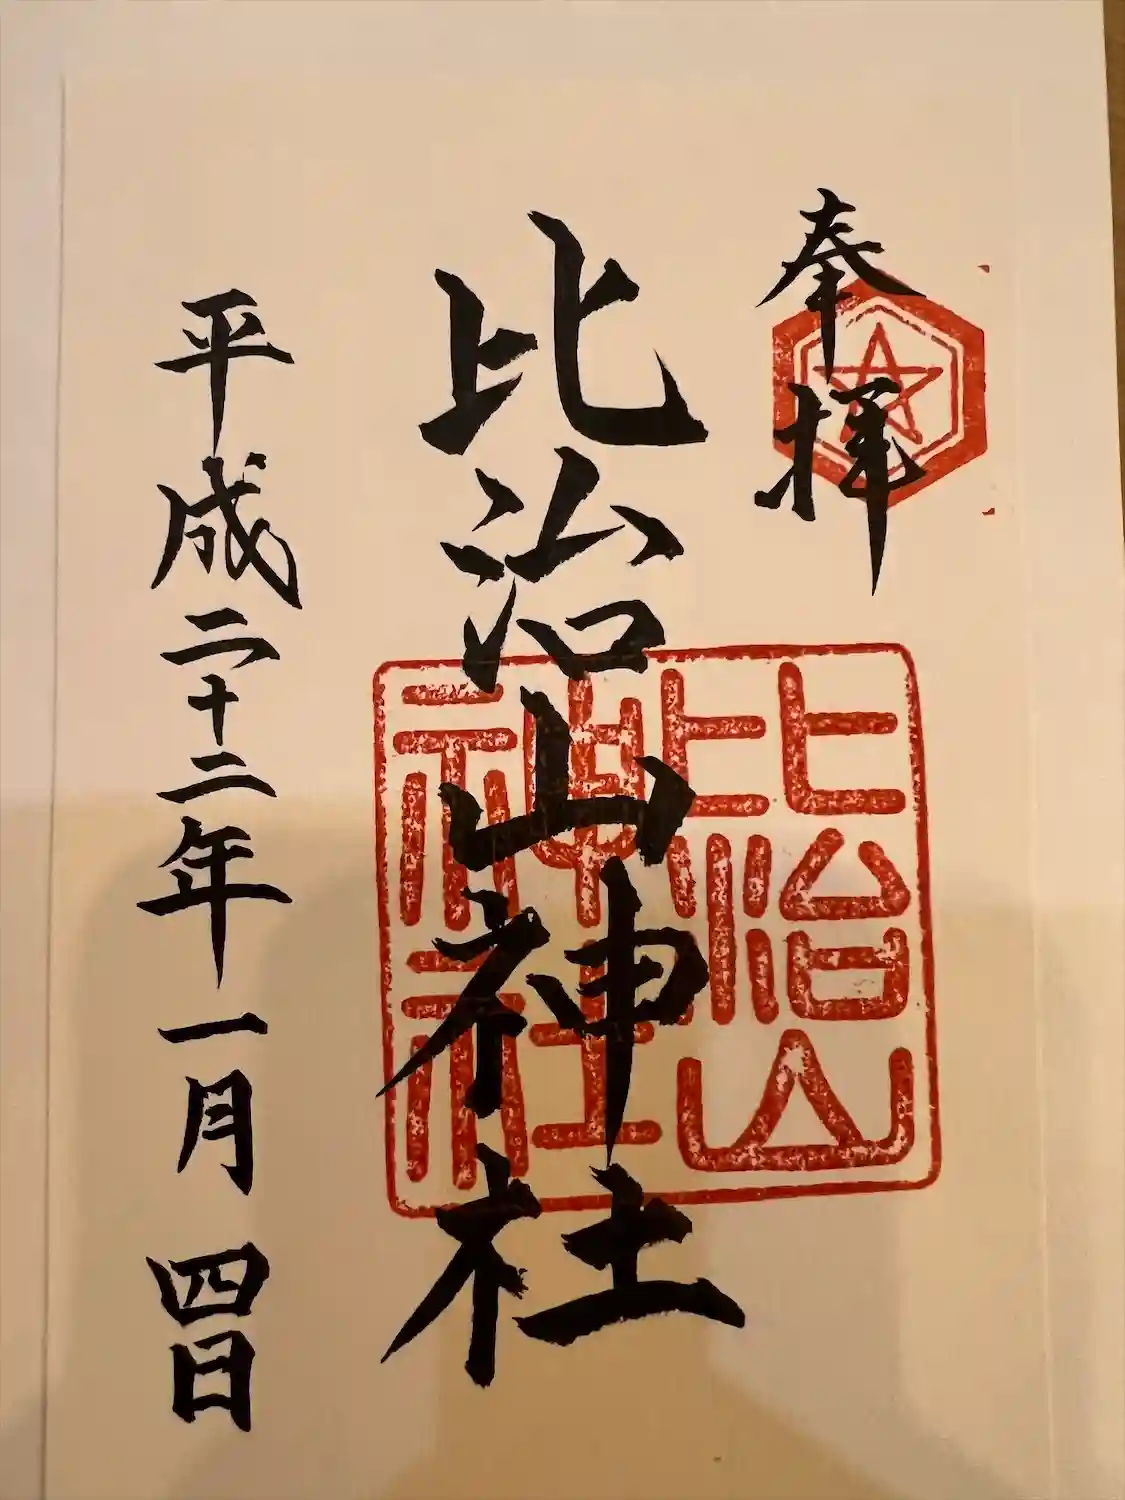 奉拝
比治山神社
比治山
神社
平成二十二年一月四日